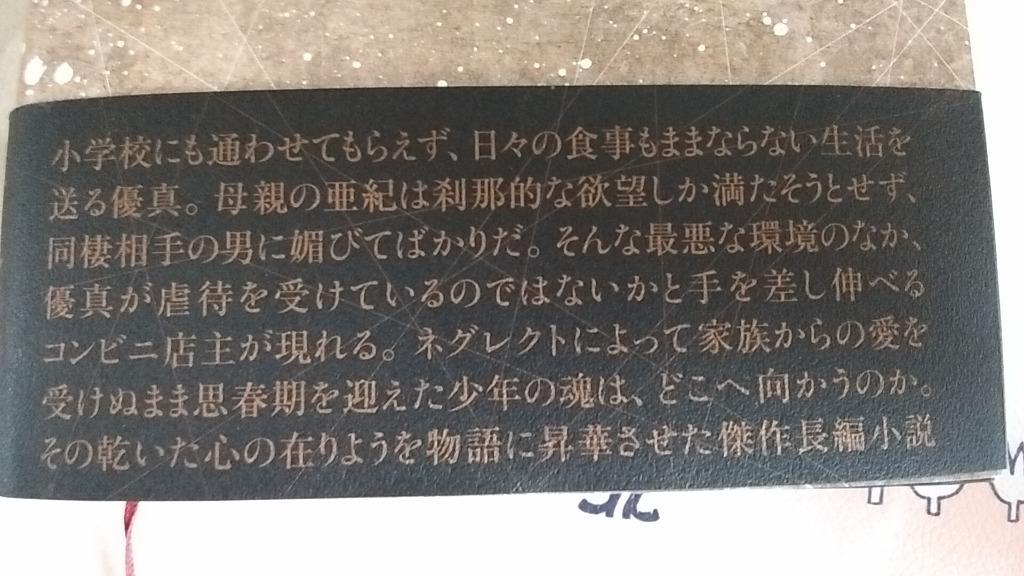 小学校にも通わせてもらえず、日々の食事もままならない生活を
送る優真。母親の亜紀は刹那的な欲望しか満たそうとせず、
同棲相手の男に媚びてばかりだ。そんな最悪な環境のなか、
優真が虐待を受けているのではないかと手を差し伸べる
コンビニ店主が現れる。ネグレクトによって家族からの愛を
受けぬまま思春期を迎えた少年の魂は、どこへ向かうのか。
その乾いた心の在りようを物語に昇華させた傑作長編小説